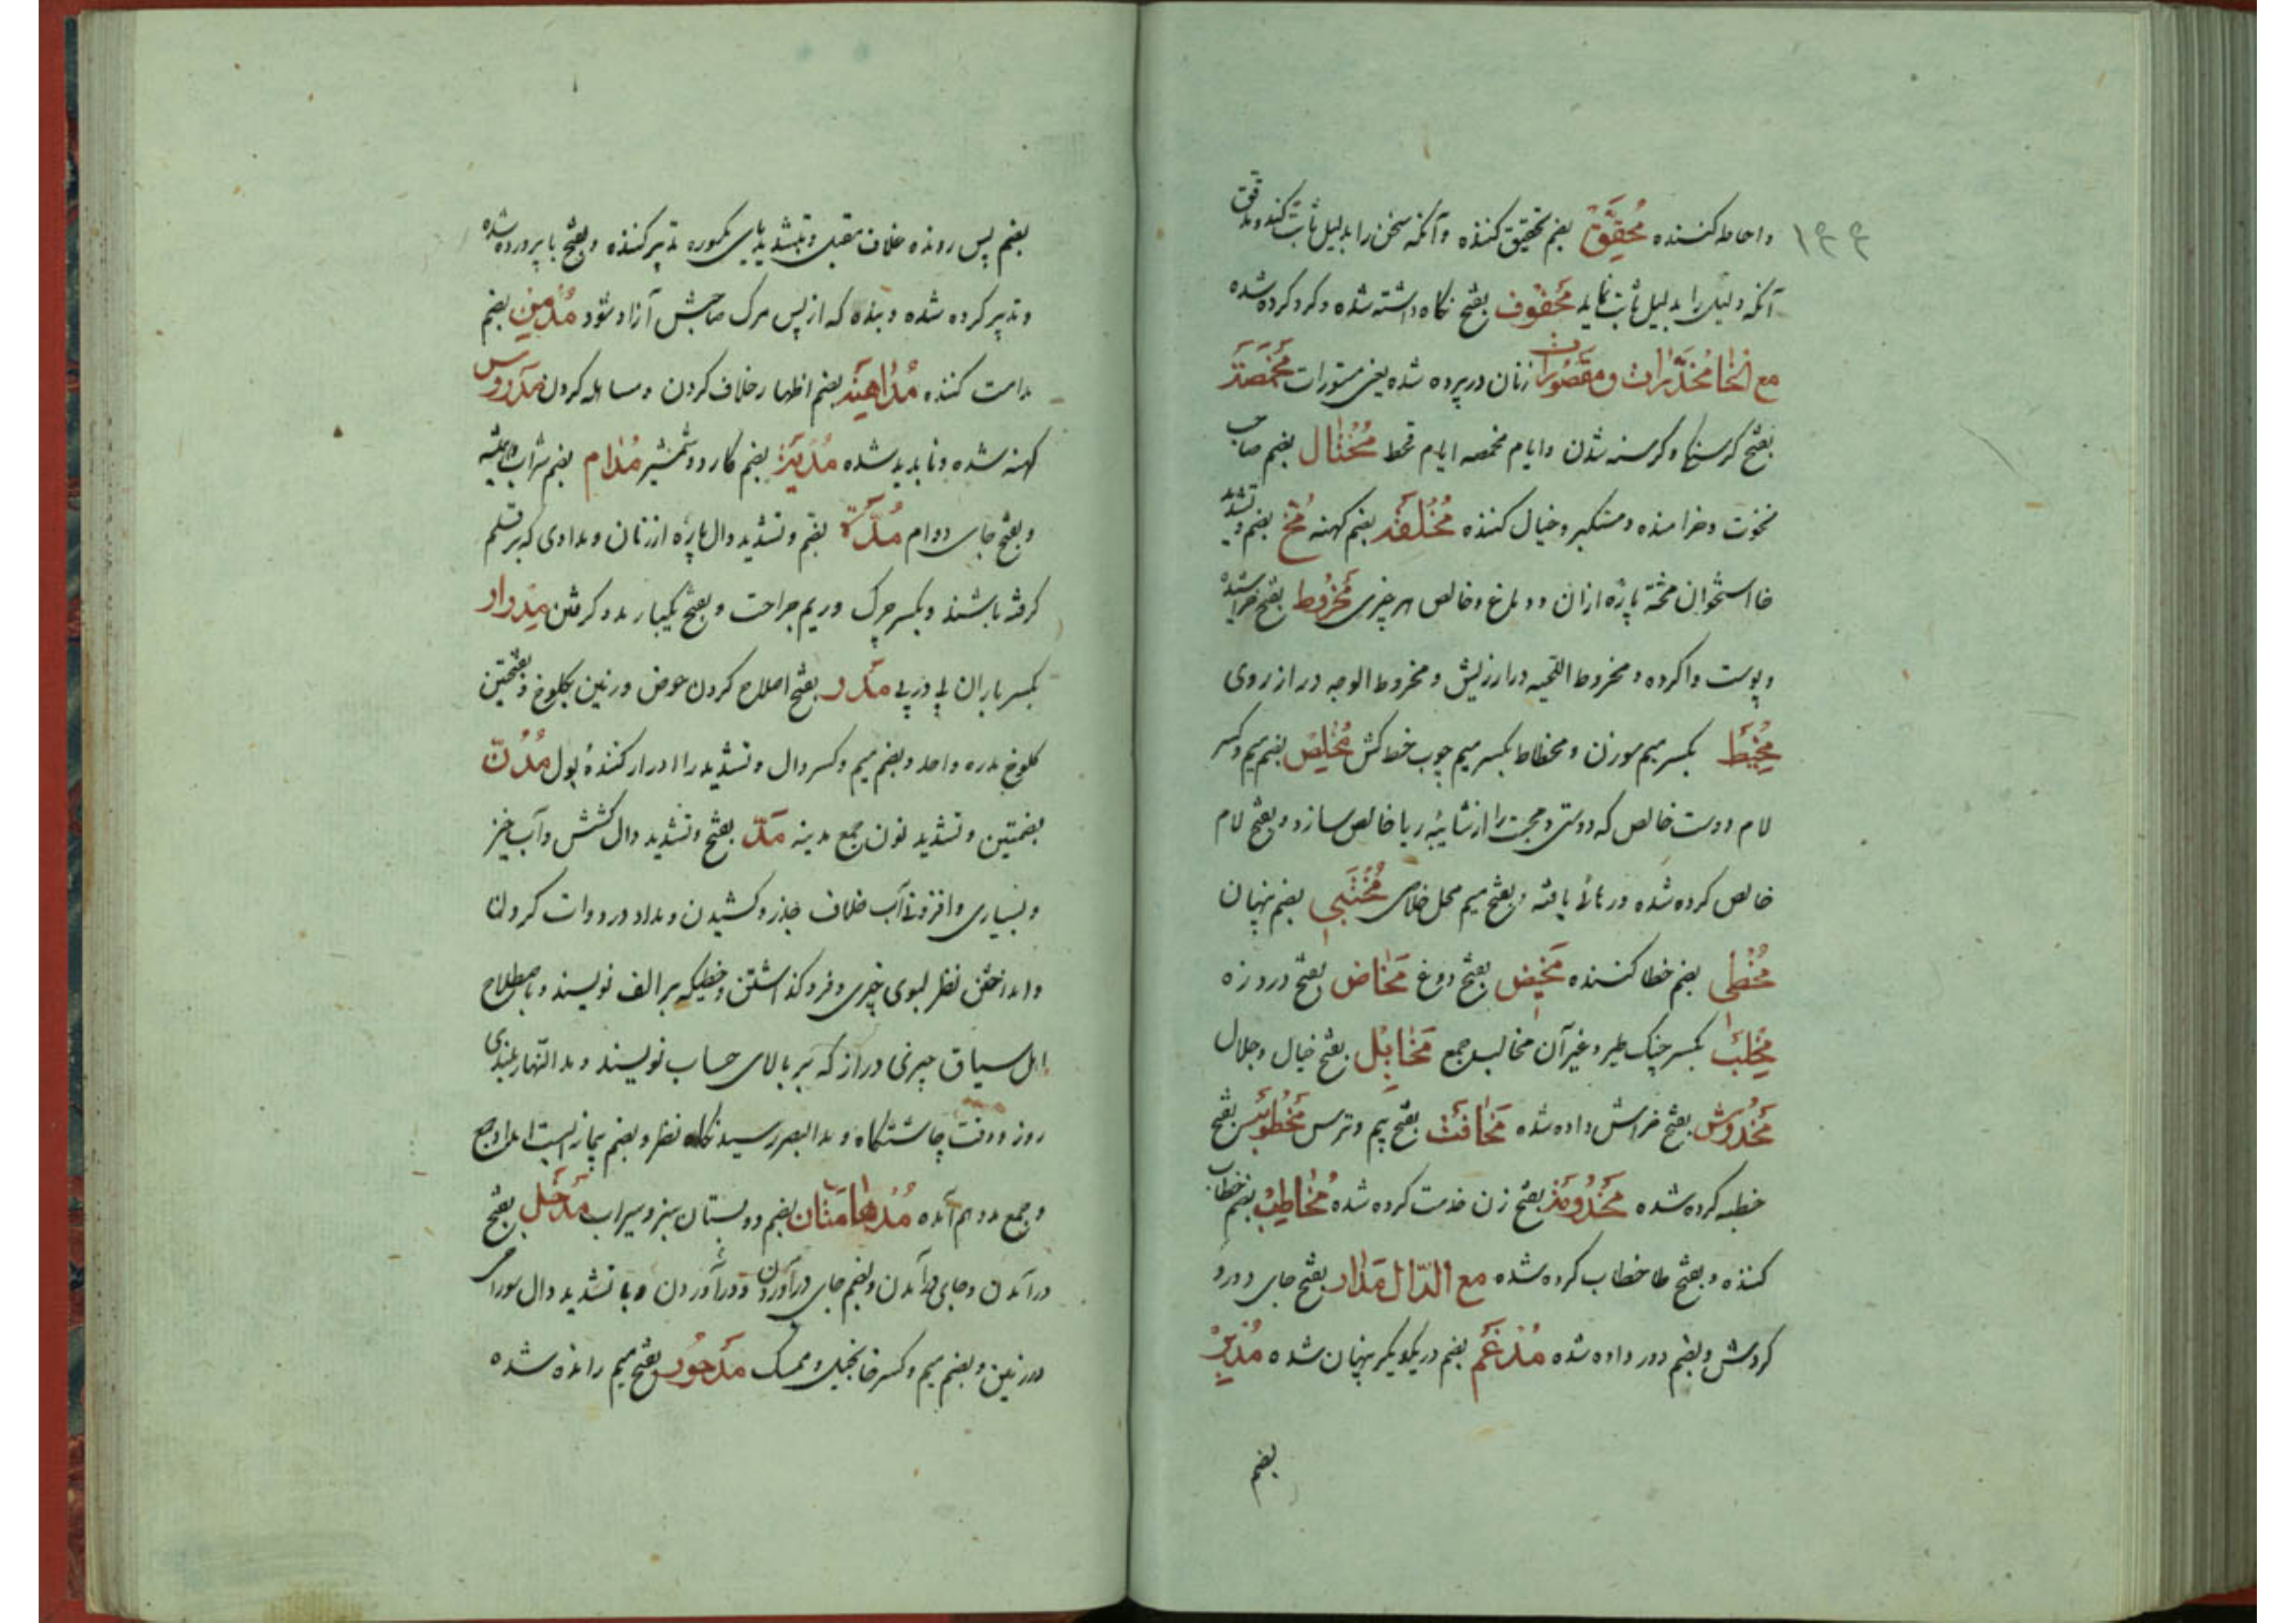 ۱۳۳
واحاطه کننده مُحَقِّق بضم تحقیق کننده وآنکه سخن را بدلیل ثابت کند ومدقق
آنکه دلیل را بدلیل ثابت نماید مَحفُوف بفتح نگاه داشته شده وکرد کرده شده
مع الخا مُخَدَّرات ومَقصُورات زنان در پرده شده یعنی مستورات مَخمَصَه
بفتح کرسنکی وکرسنه شدن وایام مخمصه ایام قحط مُختال بضم صاحب
نخوت وخرامنده ومتکبر وخیال کننده مُخلَقَه بضم کهنه مُخ بضم وتشدید
خا استخوان پخته پاره ازان ودماغ وخالص هر چیزی مَخرُوط بفتح خراشیده
وپوست واکرده ومخروط اللحیه دراز ریش ومخروط الوجه دراز روی
مِخیَط بکسر میم سوزن ومخطاط بکسر میم چوب خط کش مُخلِص بضم میم وکسر
لام دوست خالص که دوستی ومحبت را از شایبه ریا خالص سازد وبفتح لام
خالص کرده شده ورهائی یافته وبفتح میم محل خلاصی مُختَبی بضم پنهان
مُخطی بضم خطا کننده مَخِیض بفتح دوغ مَخاض بفتح درد زه
مِخلَب بکسر چنک طیر وغیر آن مخالب جمع مَخایِل بفتح خیال وجلال
مَخدُوش بفتح خراش داده شده مَخافَت بفتح بیم وترس بفتح
خطبه کرده شده مَخدُومَه بفتح زن خدمت کرده شده مُخاطِب بضم خطاب
کننده وبفتح طا خطاب کرده شده مع الدّال مَدار بفتح جای دور و
کردش وبضم دور داده شده مُدغَم بضم در یکدیکر پنهان شده مُدبِر
بضم
بضم پس رونده خلاف مقبل وبتشدید بای مکسوره تدبیر کننده وبفتح با پرورده شده
وتدبیر کرده شده وبنده که از پس مرک صاحبش آزاد شود مُدمِن بضم
مدامت کننده مُداهِنَه بضم اظهار خلاف کردن ومساهله کردن مَدرُوس
کهنه شده وناپدید شده بضم کارد وشمشیر مُدام بضم شراب وهمیشه
وبفتح جای دوام مُدَّة بضم وتشدید دال پاره از زمان ومدادی که بر قلم
کرفته باشند وبکسر چرک وریم جراحت وبفتح یکبار مدد کرفتن مِدرار
بکسر باران پی در پی مَدَر بفتح اصلاح کردن حوض وزمین بکلوخ وبفتحتین
کلوخ مدره واحد وبضم میم وکسر دال وتشدید را ادرار کنندهٔ بول مُدُنّ
بضمتین وتشدید نون جمع مدینه مَدّ بفتح وتشدید دال کشش وآب خیز
وبسیاری وافزونی آب خلاف جذر وکشیدن ومداد در دوات کردن
وانداختن نظر بسوی چیزی وفرو کذاشتن وخطیکه بر الف نویسند وباصطلاح
اهل سیاق چیزی دراز که بر بالای حساب نویسند ومد النهار بلندی
روز ووقت چاشتکاه ومد البصر رسیدنکاه نظر وبضم پیمانه ایست امداد جمع
وجمع مدد هم آمده مُدهامَّتان بضم دو بستان سبز وسیراب مَدخَل بفتح
درآمدن وجای درآمدن وبضم جای درآوردن ودرآوردن وبا تشدید دال سوراخی
در زمین وبضم میم وکسر خا بخیل وممسک مَدحُور بفتح میم رانده شده